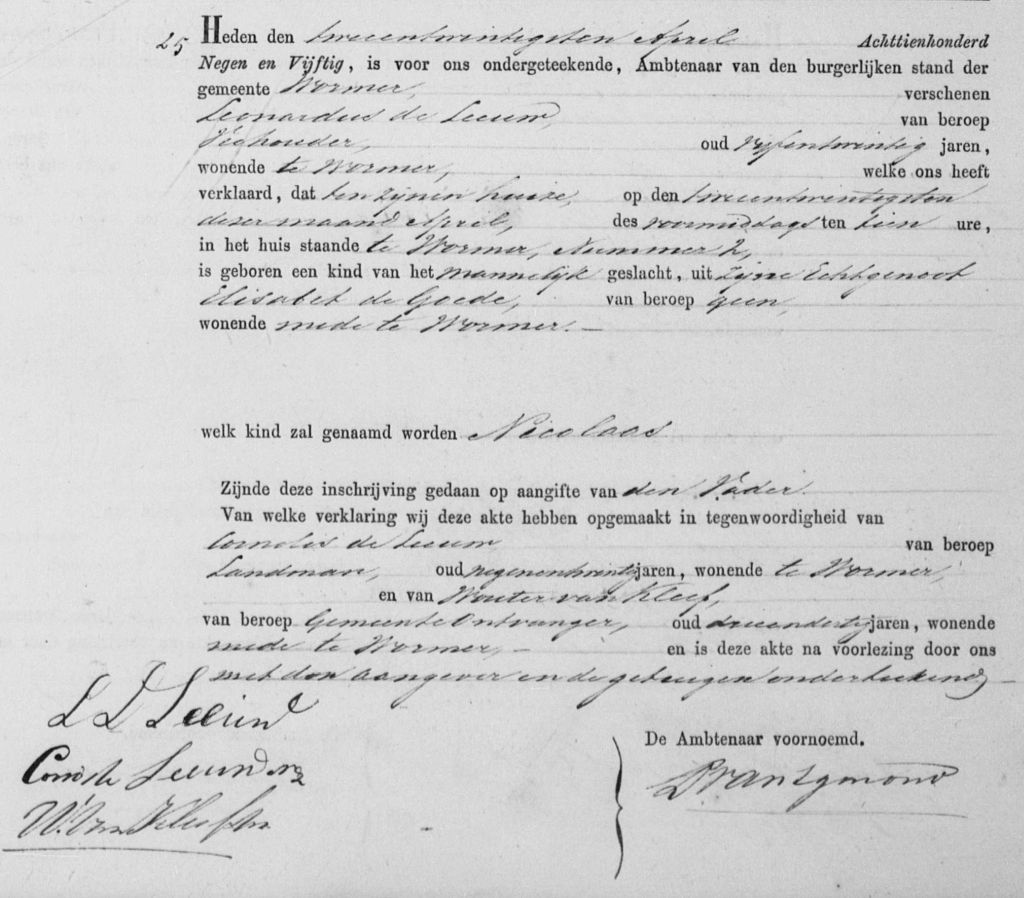 25 Heden den tweeentwintigsten April Achttienhonderd
Negen en Vijftig, is voor ons ondergeteekende, Ambtenaar van den burgerlijken stand der
gemeente Wormer, verschenen
Leonardus de Leeuw, van beroep
Veehouder, oud vijfentwintig jaren,
wonende te Wormer, welke ons heeft
verklaard, dat ten zijnen huize, op den tweeentwintigsten
dezer maand April, des voormiddags ten tien ure,
in het huis staande te Wormer, Nummer 2,
is geboren een kind van het mannelijk geslacht, uit zijne Echtgenoot
Elisabet de Goede, van beroep geen,
wonende mede te Wormer. —
welk kind zal genaamd worden Nicolaas
Zijnde deze inschrijving gedaan op aangifte van den Vader.
Van welke verklaring wij deze akte hebben opgemaakt in tegenwoordigheid van
Cornelis de Leeuw van beroep
Landman, oud negenentwintig jaren, wonende te Wormer,
en van Wouter van Kleef,
van beroep Gemeente Ontvanger, oud drieendertig jaren, wonende
mede te Wormer, — en is deze akte na voorlezing door ons
met den aangever en de getuigen onderteekend —
L D Leeuw
Corns de Leeuw
W. van Kleef
De Ambtenaar voornoemd.